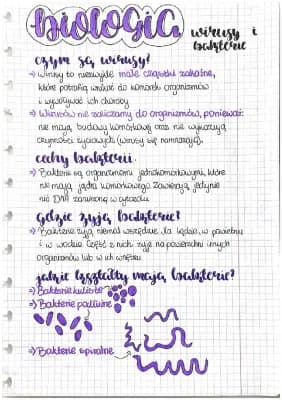 biologia
wirusy i
bakterie
czym są wirusy?
→ Wirusy to niezwykle małe cząstki zakaźne,
które potrafią wnikać do komórek organizmów
i wywoływać ich choroby
→ Wirusów nie zaliczamy do organizmów, ponieważ:
nie mają budowy komórkowej oraz nie wykazują
czynności życiowych (wirusy się namnażają).
cechy bakterii:
→ Bakterie są organizmami jednokomórkowymi, które
nie mają jądra komórkowego. Zawierają jedynie
nić DNA zanurzoną w
gdzie żyją bakterie?
→ Bakterie żyją niemal wszędzie. Na lądzie, w powietrzu
i w wodzie. Część z nich żyje na powierzchni innych
organizmów lub w ich wnętrzu.
jakie kształty mają bakterie?
→ Bakterie kuliste
→ Bakterie podłużne
→ Bakterie spiralne